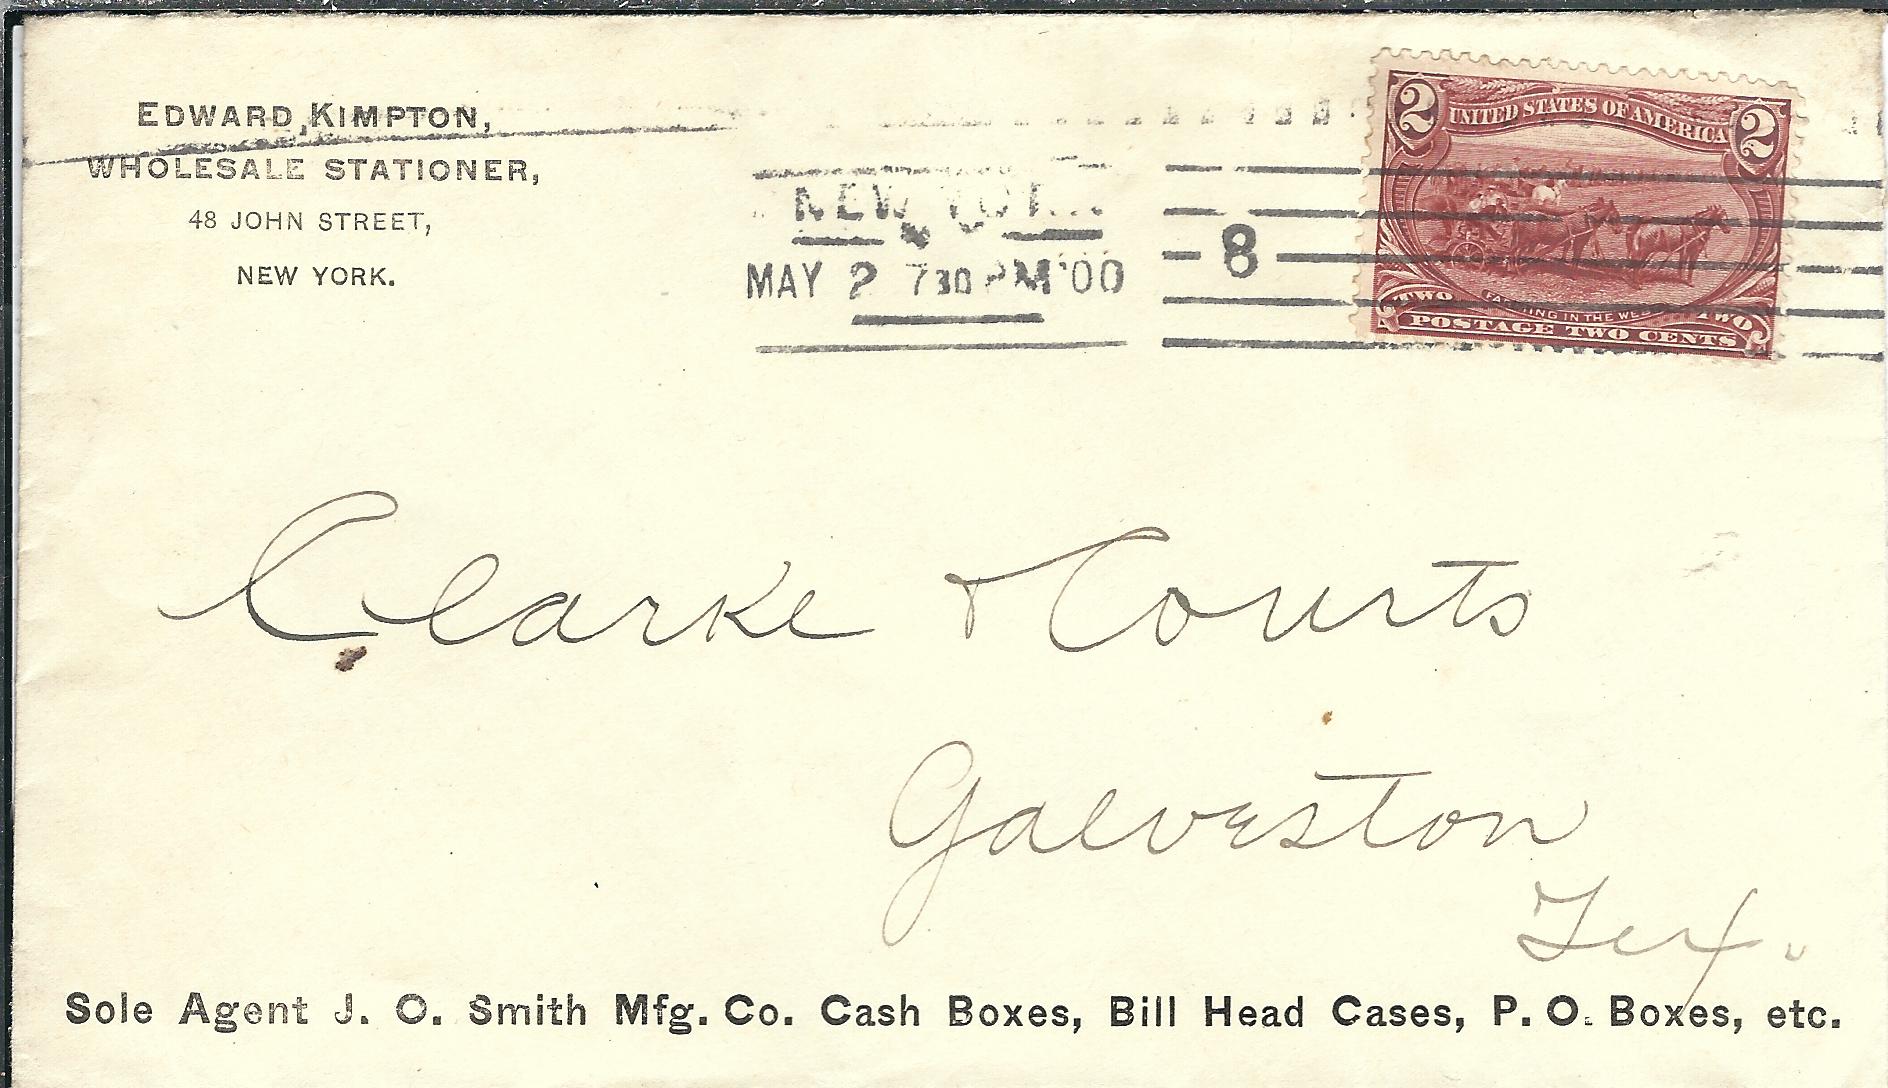 EDWARD KIMPTON,
WHOLESALE STATIONER,
48 JOHN STREET,
NEW YORK.
NEW YORK
MAY 2 730 PM '00
8
2 UNITED STATES OF AMERICA 2
TWO FARMING IN THE WEST TWO
POSTAGE TWO CENTS
Clarke & Courts
Galveston
Tex.
Sole Agent J. O. Smith Mfg. Co. Cash Boxes, Bill Head Cases, P. O. Boxes, etc.